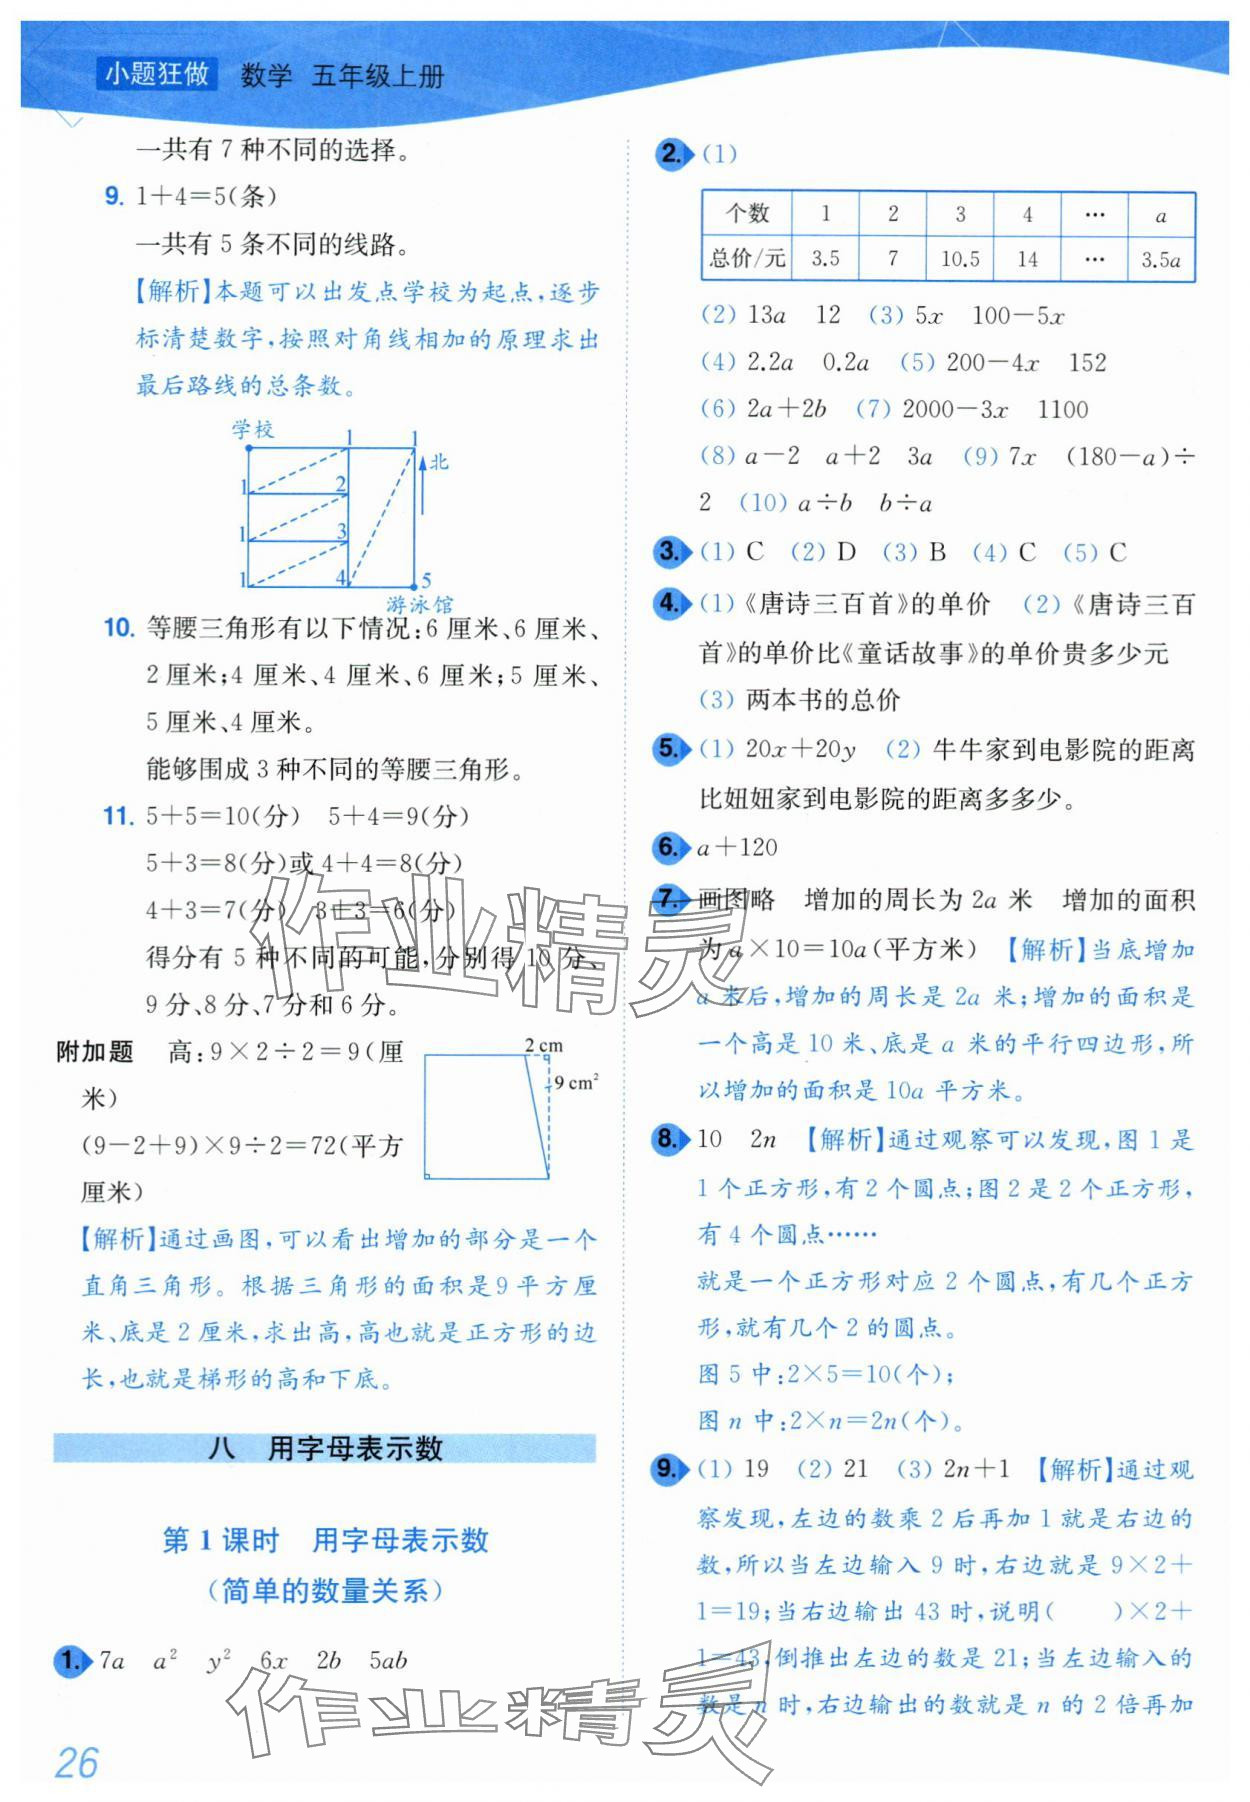 小题狂做 数学 五年级上册
一共有 7 种不同的选择。
9. 1+4=5(条)
一共有 5 条不同的线路。
【解析】本题可以出发点学校为起点,逐步
标清楚数字,按照对角线相加的原理求出
最后路线的总条数。
学校 1 1
北
1 2
1 3
1 4 5
游泳馆
10. 等腰三角形有以下情况:6 厘米、6 厘米、
2 厘米;4 厘米、4 厘米、6 厘米;5 厘米、
5 厘米、4 厘米。
能够围成 3 种不同的等腰三角形。
11. 5+5=10(分) 5+4=9(分)
5+3=8(分)或 4+4=8(分)
4+3=7(分) 3+3=6(分)
得分有 5 种不同的可能,分别得 10 分、
9 分、8 分、7 分和 6 分。
附加题 高:9×2÷2=9(厘
米)
(9-2+9)×9÷2=72(平方
厘米)
2 cm
9 cm²
【解析】通过画图,可以看出增加的部分是一个
直角三角形。根据三角形的面积是 9 平方厘
米、底是 2 厘米,求出高,高也就是正方形的边
长,也就是梯形的高和下底。
八 用字母表示数
第 1 课时 用字母表示数
(简单的数量关系)
1. 7a a² y² 6x 2b 5ab
26
2. (1)
个数 1 2 3 4 … a
总价/元 3.5 7 10.5 14 … 3.5a
(2) 13a 12 (3) 5x 100-5x
(4) 2.2a 0.2a (5) 200-4x 152
(6) 2a+2b (7) 2000-3x 1100
(8) a-2 a+2 3a (9) 7x (180-a)÷
2 (10) a÷b b÷a
3. (1) C (2) D (3) B (4) C (5) C
4. (1)《唐诗三百首》的单价 (2)《唐诗三百
首》的单价比《童话故事》的单价贵多少元
(3) 两本书的总价
5. (1) 20x+20y (2) 牛牛家到电影院的距离
比妞妞家到电影院的距离多多少。
6. a+120
7. 画图略 增加的周长为 2a 米 增加的面积
为 a×10=10a(平方米) 【解析】当底增加
a 米后,增加的周长是 2a 米;增加的面积是
一个高是 10 米、底是 a 米的平行四边形,所
以增加的面积是 10a 平方米。
8. 10 2n 【解析】通过观察可以发现,图 1 是
1 个正方形,有 2 个圆点;图 2 是 2 个正方形,
有 4 个圆点……
就是一个正方形对应 2 个圆点,有几个正方
形,就有几个 2 的圆点。
图 5 中:2×5=10(个);
图 n 中:2×n=2n(个)。
9. (1) 19 (2) 21 (3) 2n+1 【解析】通过观
察发现,左边的数乘 2 后再加 1 就是右边的
数,所以当左边输入 9 时,右边就是 9×2+
1=19;当右边输出 43 时,说明( )×2+
1=43,倒推出左边的数是 21;当左边输入的
数是 n 时,右边输出的数就是 n 的 2 倍再加
作业精灵
作业精灵